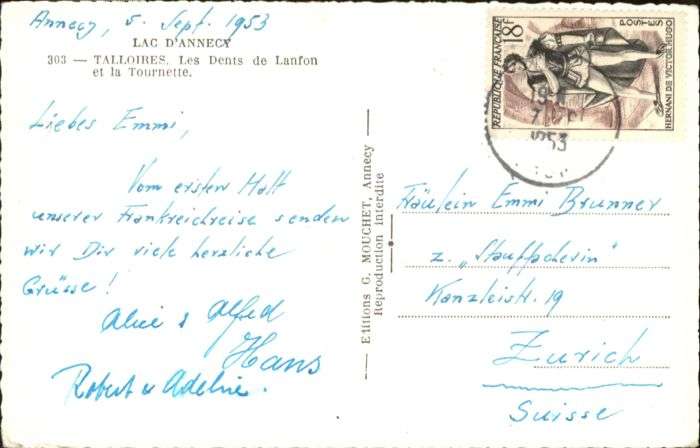 Annecy, 5. Sept. 1953
LAC D'ANNECY
303 — TALLOIRES. Les Dents de Lanfon
et la Tournette.
Liebes Emmi,
Vom ersten Halt
unserer Frankreichreise senden
wir Dir viele herzliche
Grüsse!
Alice & Alfred
Hans
Robert u Adeline.
Editions G. MOUCHET, Annecy
Reproduction interdite
18F
POSTES
REPUBLIQUE FRANÇAISE
HERNANI DE VICTOR HUGO
1953
Fräulein Emmi Brunner
z. „Stauffacherin"
Kanzleistr. 19
Zürich
Suisse